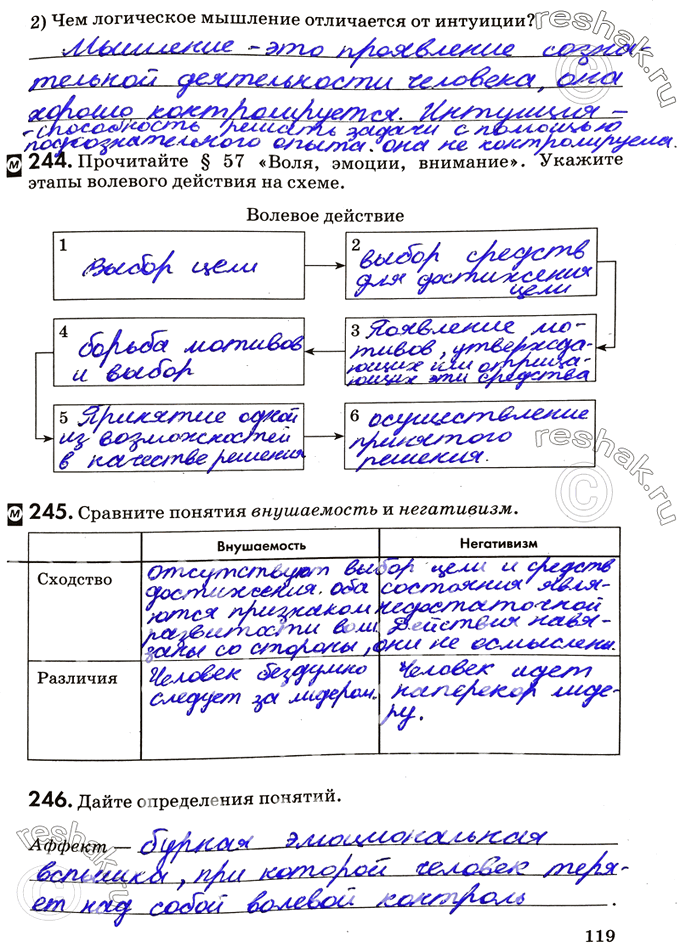 2) Чем логическое мышление отличается от интуиции?
Мышление - это проявление созна-
тельной деятельности человека, она
хорошо контролируется. Интуиция -
- способность решать задачи с помощью
подсознательного опыта. она не контролируема.
м 244. Прочитайте § 57 «Воля, эмоции, внимание». Укажите
этапы волевого действия на схеме.
Волевое действие
1
Выбор цели
2
выбор средств
для достижения
цели
3 Появление мо-
тивов, утвержда-
ющих или отрица-
ющих эти средства
4
борьба мотивов
и выбор
5 Принятие одной
из возможностей
в качестве решения
6 осуществление
принятого
решения.
м 245. Сравните понятия внушаемость и негативизм.
Внушаемость Негативизм
Сходство
отсутствуют выбор цели и средств
достижения. оба состояния явля-
ются признаком недостаточной
развитости воли. Действия навя-
заны со стороны, они не осмыслены.
Различия
Человек бездумно
следует за лидером.
Человек идет
наперекор лиде-
ру.
246. Дайте определения понятий.
Аффект — бурная эмоциональная
вспышка, при которой человек теря-
ет над собой волевой контроль.
119
reshak.ru
reshak.ru
reshak.ru
reshak.ru
©
©